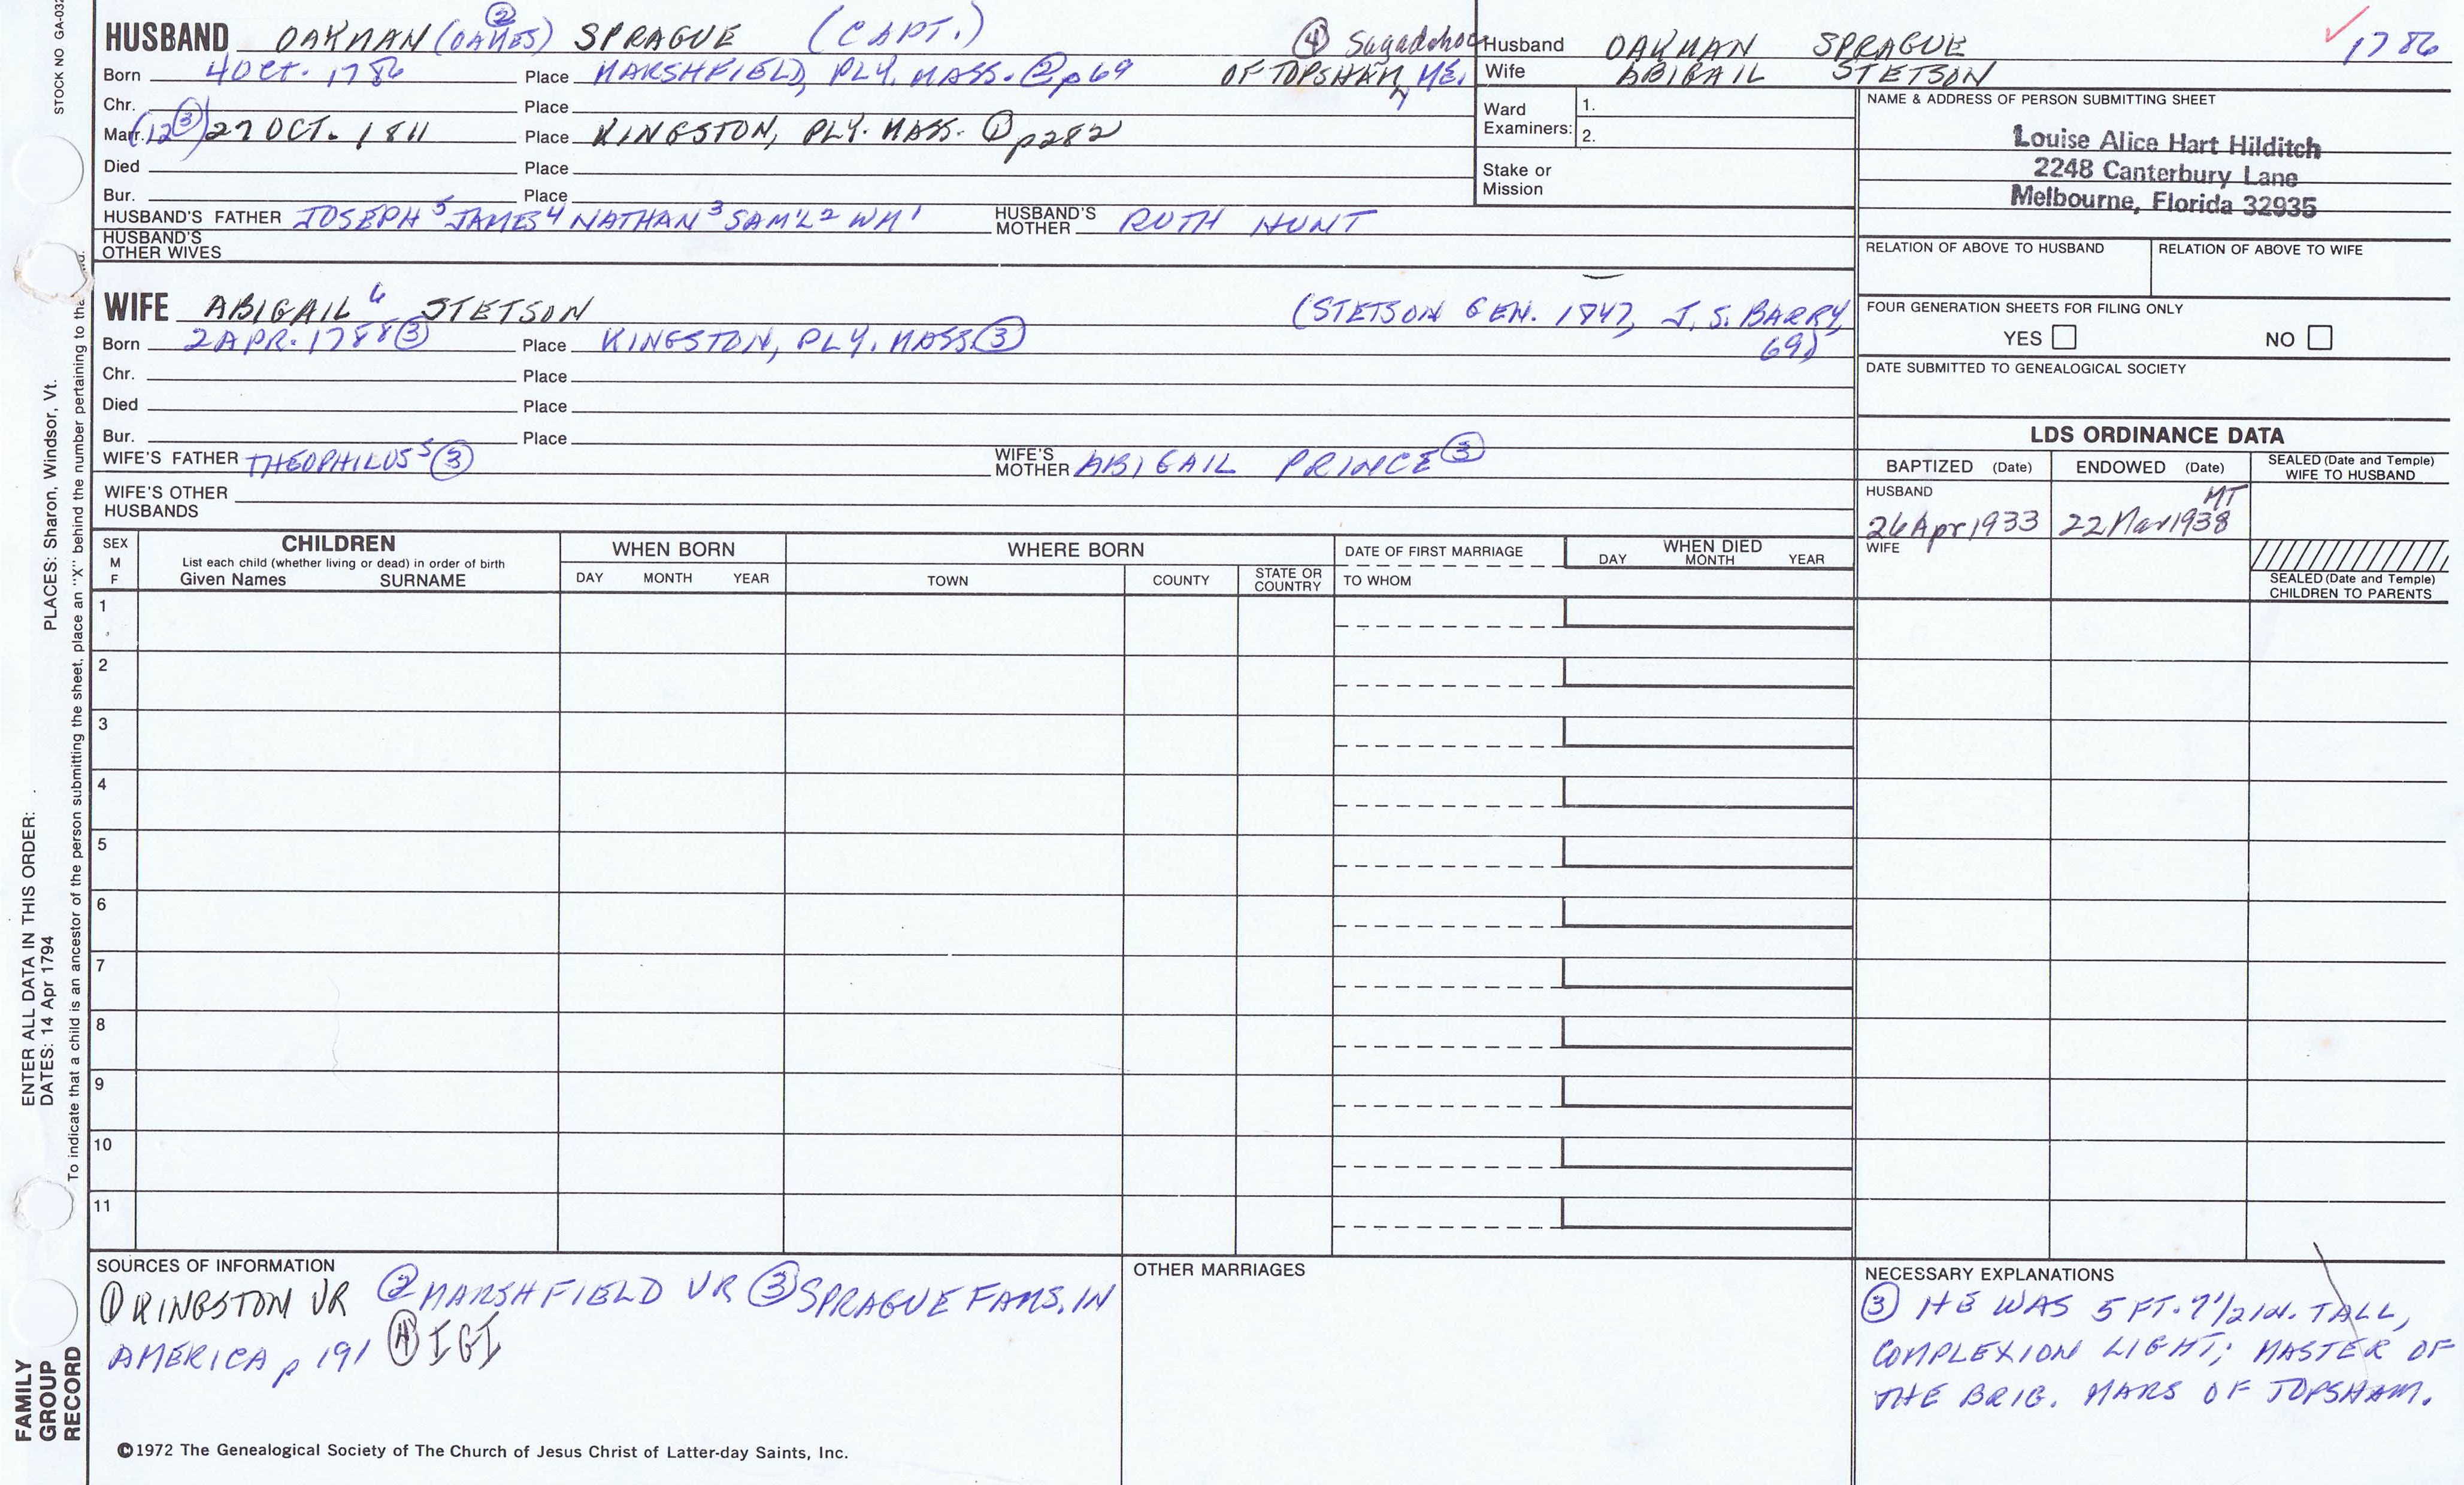 STOCK NO GA-032
HUSBAND OAKMAN (OAMES) ② SPRAGUE (CAPT.)
④ Sagadahoc
OF TOPSHAM, ME.
Born 4 OCT. 1786 Place MARSHFIELD, PLY. MASS. ② p 69
Chr. Place
Marr. (12 ③) 27 OCT. 1811 Place KINGSTON, PLY. MASS. ① p 282
Died Place
Bur. Place
HUSBAND'S FATHER JOSEPH 5 JAMES 4 NATHAN 3 SAM'L 2 WM 1 HUSBAND'S MOTHER RUTH HUNT
HUSBAND'S OTHER WIVES
Husband OAKMAN SPRAGUE
1786
Wife ABIGAIL STETSON
Ward Examiners: 1.
2.
Stake or Mission
NAME & ADDRESS OF PERSON SUBMITTING SHEET
Louise Alice Hart Hilditch
2248 Canterbury Lane
Melbourne, Florida 32935
RELATION OF ABOVE TO HUSBAND RELATION OF ABOVE TO WIFE
WIFE ABIGAIL 6 STETSON (STETSON GEN. 1847, J. S. BARRY, 69)
Born 2 APR. 1788 ③ Place KINGSTON, PLY. MASS ③
Chr. Place
Died Place
Bur. Place
WIFE'S FATHER THEOPHILUS 5 ③ WIFE'S MOTHER ABIGAIL PRINCE ③
WIFE'S OTHER HUSBANDS
FOUR GENERATION SHEETS FOR FILING ONLY
YES NO
DATE SUBMITTED TO GENEALOGICAL SOCIETY
LDS ORDINANCE DATA
BAPTIZED (Date) ENDOWED (Date) SEALED (Date and Temple) WIFE TO HUSBAND
HUSBAND
26 Apr 1933 22 Mar 1938 MT
WIFE
SEALED (Date and Temple) CHILDREN TO PARENTS
SEX M F
CHILDREN
List each child (whether living or dead) in order of birth
Given Names SURNAME
WHEN BORN
DAY MONTH YEAR
WHERE BORN
TOWN COUNTY STATE OR COUNTRY
DATE OF FIRST MARRIAGE
TO WHOM
WHEN DIED
DAY MONTH YEAR
1
2
3
4
5
6
7
8
9
10
11
SOURCES OF INFORMATION
① KINGSTON VR ② MARSHFIELD VR ③ SPRAGUE FAMS. IN
AMERICA p 191 ④ IGI
OTHER MARRIAGES
NECESSARY EXPLANATIONS
③ HE WAS 5 FT. 7 1/2 IN. TALL,
COMPLEXION LIGHT; MASTER OF
THE BRIG. MARS OF TOPSHAM.
©1972 The Genealogical Society of The Church of Jesus Christ of Latter-day Saints, Inc.
FAMILY
GROUP
RECORD
ENTER ALL DATA IN THIS ORDER:
DATES: 14 Apr 1794 PLACES: Sharon, Windsor, Vt.
To indicate that a child is an ancestor of the person submitting the sheet, place an "X" behind the number pertaining to